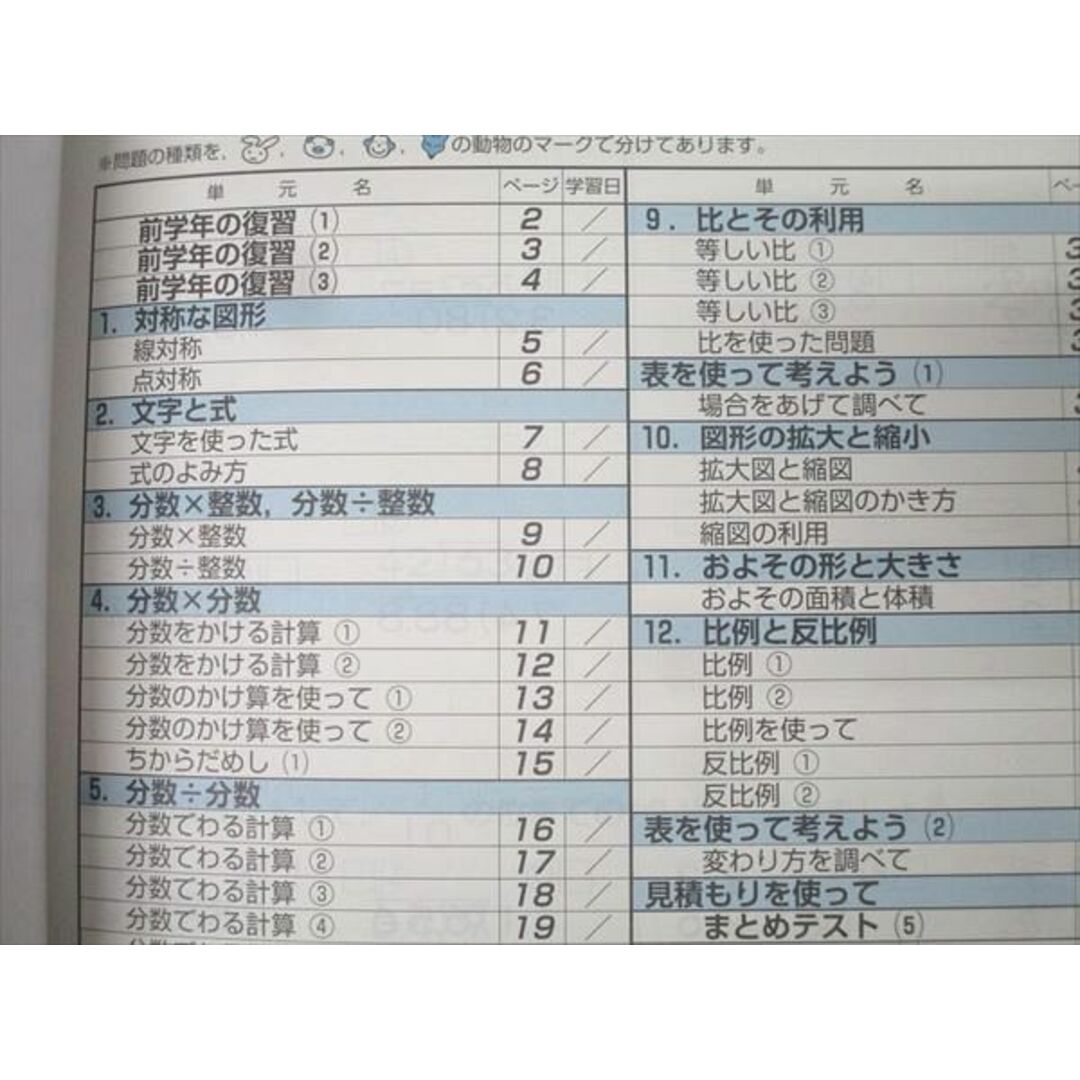 ※問題の種類を, , , , の動物のマークで分けてあります。
単元名 ページ 学習日
前学年の復習 (1) 2 /
前学年の復習 (2) 3 /
前学年の復習 (3) 4 /
1. 対称な図形
線対称 5 /
点対称 6 /
2. 文字と式
文字を使った式 7 /
式のよみ方 8 /
3. 分数×整数, 分数÷整数
分数×整数 9 /
分数÷整数 10 /
4. 分数×分数
分数をかける計算 ① 11 /
分数をかける計算 ② 12 /
分数のかけ算を使って ① 13 /
分数のかけ算を使って ② 14 /
ちからだめし (1) 15 /
5. 分数÷分数
分数でわる計算 ① 16 /
分数でわる計算 ② 17 /
分数でわる計算 ③ 18 /
分数でわる計算 ④ 19 /
単元名
9. 比とその利用
等しい比 ①
等しい比 ②
等しい比 ③
比を使った問題
表を使って考えよう (1)
場合をあげて調べて
10. 図形の拡大と縮小
拡大図と縮図
拡大図と縮図のかき方
縮図の利用
11. およその形と大きさ
およその面積と体積
12. 比例と反比例
比例 ①
比例 ②
比例を使って
反比例 ①
反比例 ②
表を使って考えよう (2)
変わり方を調べて
見積もりを使って
まとめテスト (5)